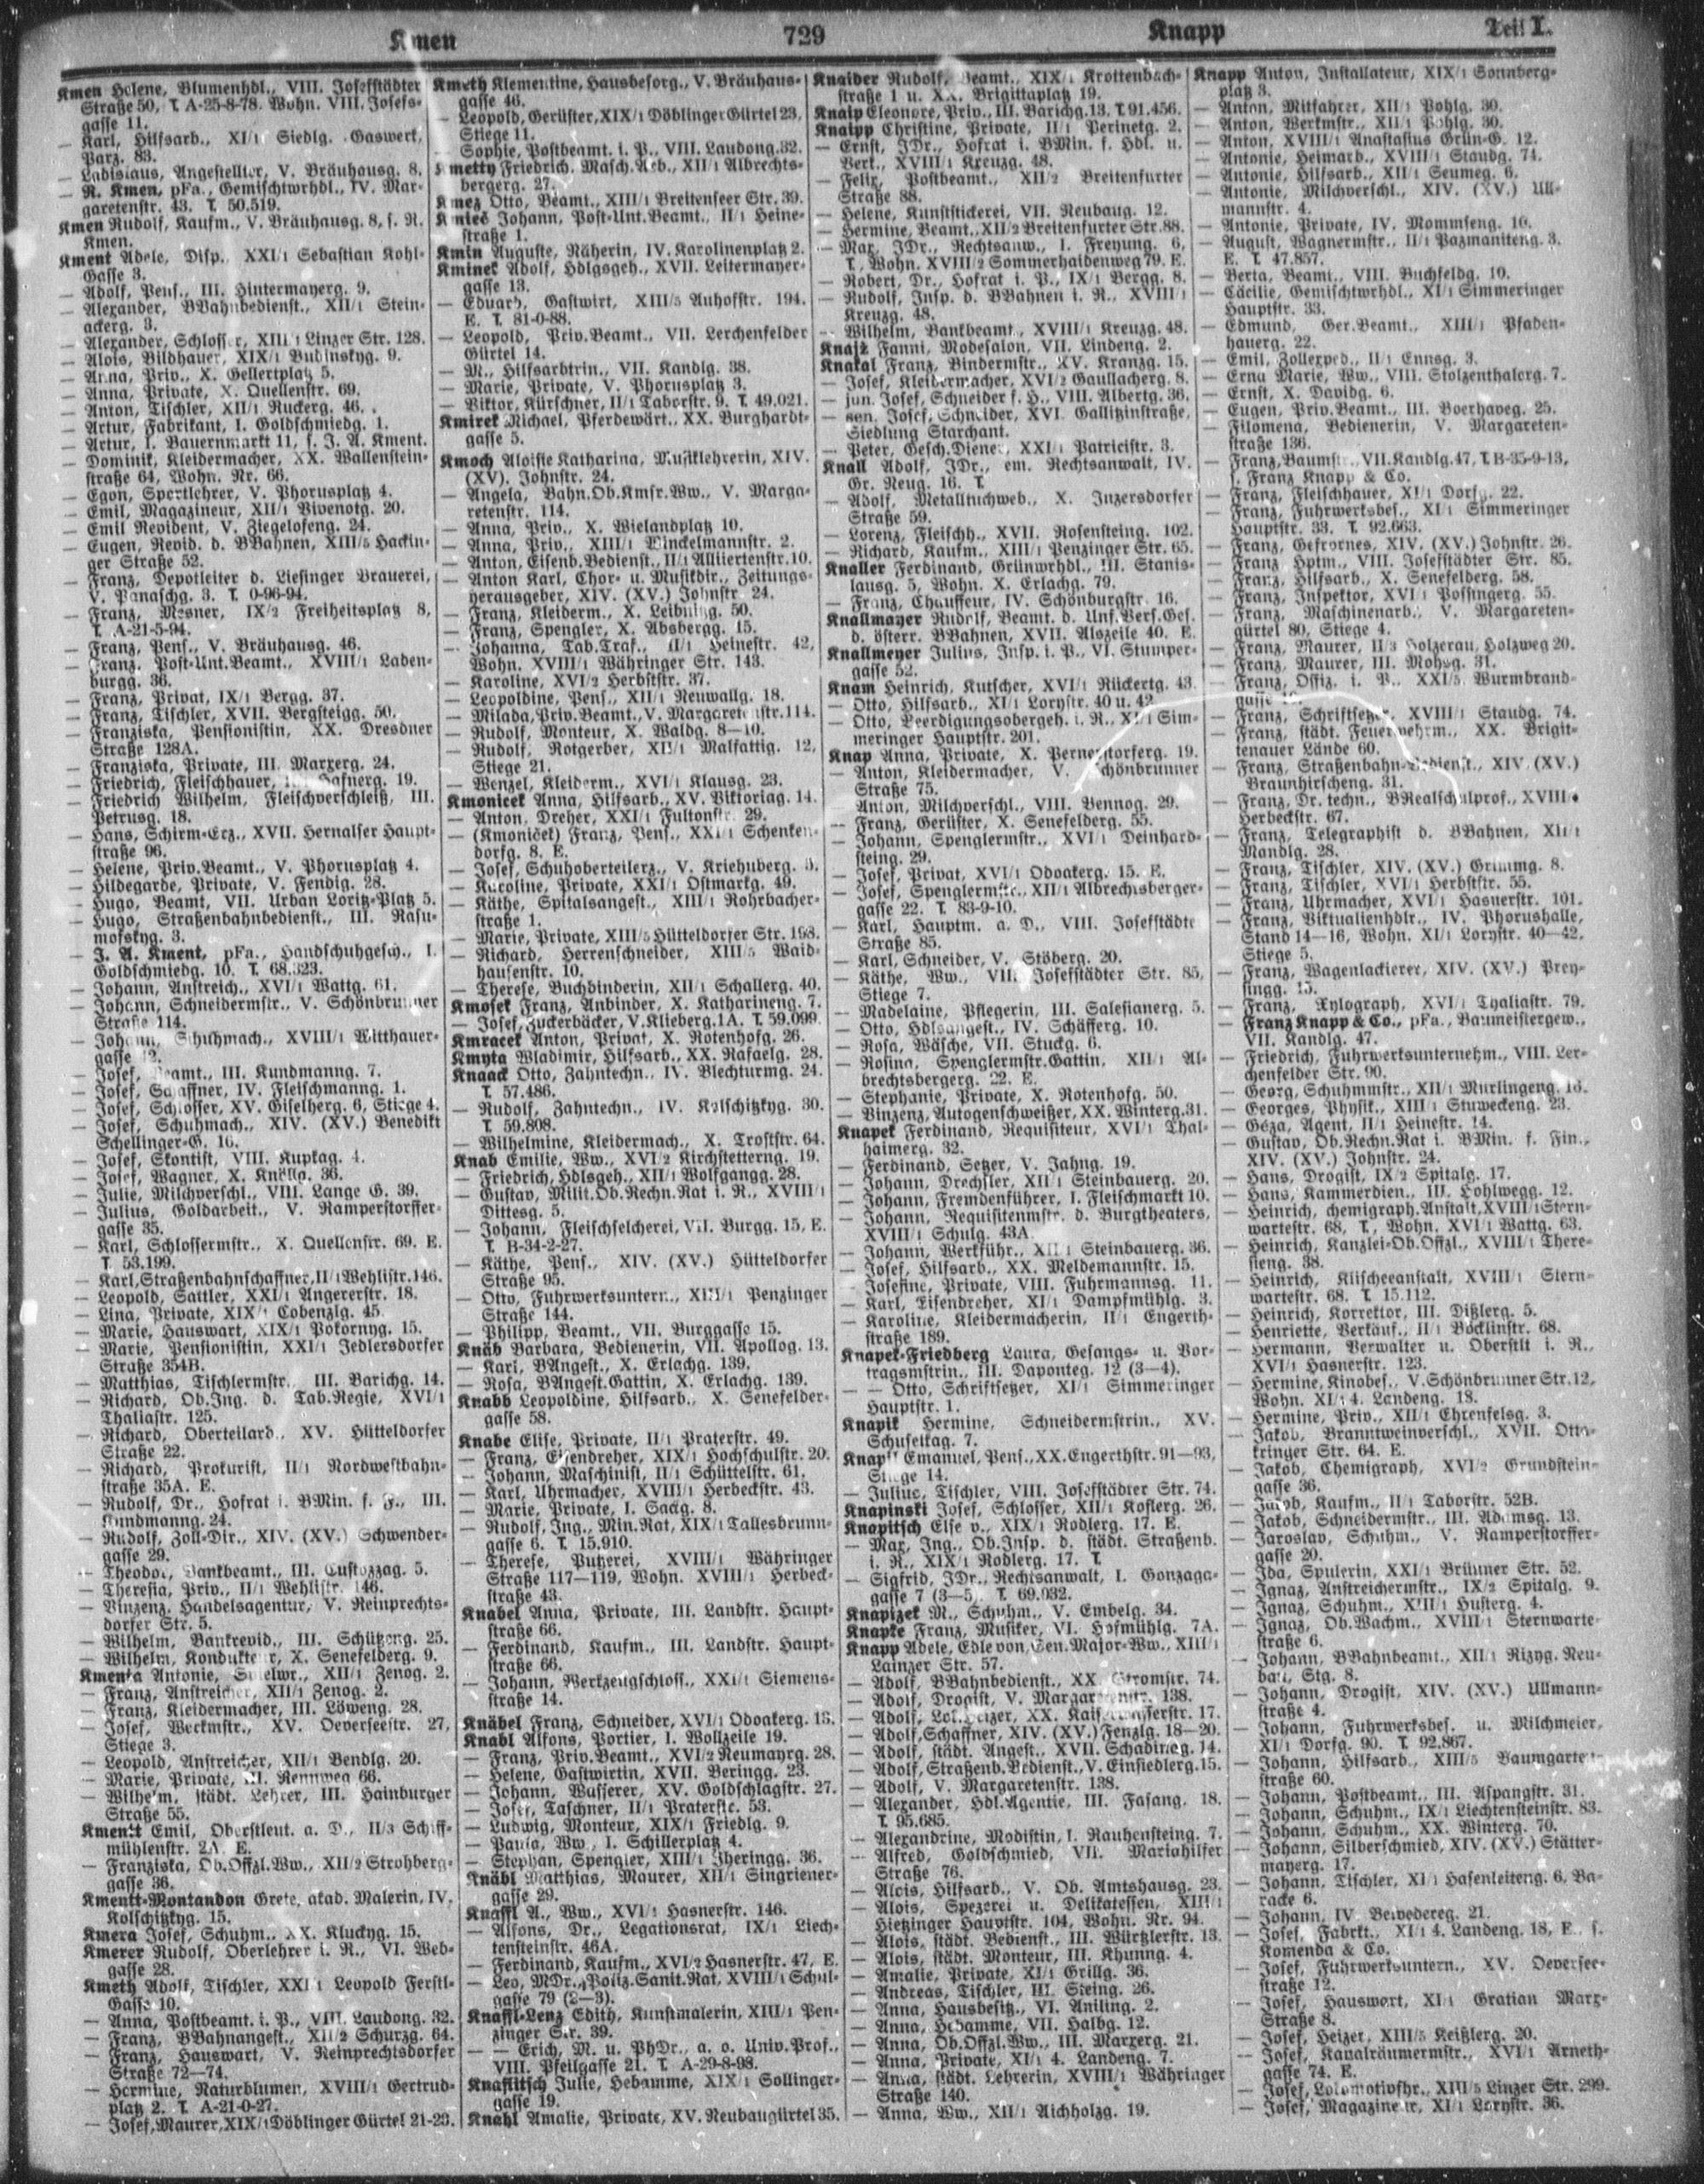 Kmen
729
Knapp
Teil I.
Kmen Helene, Blumenhdl., VIII. Josefstädter
Straße 50, T. A-25-8-78. Wohn. VIII. Josefs-
gasse 11.
— Karl, Hilfsarb., XI/1 Siedlg. Gaswerk,
Parz. 83.
— Ladislaus, Angestellter, V. Bräuhausg. 8.
— R. Kmen, pFa., Gemischtwrhdl., IV. Mar-
garetenstr. 43. T. 50.519.
Kmen Rudolf, Kaufm., V. Bräuhausg. 8, s. R.
Kmen.
Kment Adele, Disp., XXI/1 Sebastian Kohl-
Gasse 3.
— Adolf, Pens., III. Hintermayerg. 9.
— Alexander, BBahnbedienst., XII/1 Stein-
ackerg. 3.
— Alexander, Schlosser, XIII/1 Linzer Str. 128.
— Alois, Bildhauer, XIX/1 Budinskyg. 9.
— Anna, Priv., X. Gellertplatz 5.
— Anna, Private, X. Quellenstr. 69.
— Anton, Tischler, XII/1 Ruckerg. 46.
— Artur, Fabrikant, I. Goldschmiedg. 1.
— Artur, I. Bauernmarkt 11, s. J. A. Kment.
— Dominik, Kleidermacher, XX. Wallenstein-
straße 64, Wohn. Nr. 66.
— Egon, Sportlehrer, V. Phorusplatz 4.
— Emil, Magazineur, XII/1 Vivenotg. 20.
— Emil Revident, V. Ziegelofeng. 24.
— Eugen, Revid. d. BBahnen, XIII/5 Hackin-
ger Straße 52.
— Franz, Depotleiter d. Liesinger Brauerei,
V. Panaschg. 3. T. 0-96-94.
— Franz, Mesner, IX/2 Freiheitsplatz 8,
T. A-21-5-94.
— Franz, Pens., V. Bräuhausg. 46.
— Franz, Post-Unt.Beamt., XVIII/1 Laden-
burgg. 36.
— Franz, Privat, IX/1 Bergg. 37.
— Franz, Tischler, XVII. Bergsteigg. 50.
— Franziska, Pensionistin, XX. Dresdner
Straße 128A.
— Franziska, Private, III. Marxerg. 24.
— Friedrich, Fleischhauer, Hafnerg. 19.
— Friedrich Wilhelm, Fleischverschleiß, III.
Petrusg. 18.
— Hans, Schirm-Erz., XVII. Hernalser Haupt-
straße 96.
— Helene, Priv.Beamt., V. Phorusplatz 4.
— Hildegarde, Private, V. Fendig. 28.
— Hugo, Beamt, VII. Urban Loritz-Platz 5.
— Hugo, Straßenbahnbedienst., III. Rasu-
mofskyg. 3.
— J. A. Kment, pFa., Handschuhgesch., I.
Goldschmiedg. 10. T. 68.323.
— Johann, Anstreich., XVI/1 Wattg. 61.
— Johann, Schneidermstr., V. Schönbrunner
Straße 114.
— Johann, Schuhmach., XVIII/1 Witthauer-
gasse 12.
— Josef, Beamt., III. Kundmanng. 7.
— Josef, Schaffner, IV. Fleischmanng. 1.
— Josef, Schlosser, XV. Giselherg. 6, Stiege 4.
— Josef, Schuhmach., XIV. (XV.) Benedikt
Schellinger-G. 16.
— Josef, Skontist, VIII. Kupkag. 4.
— Josef, Wagner, X. Knöllg. 36.
— Julie, Milchverschl., VIII. Lange G. 39.
— Julius, Goldarbeit., V. Ramperstorffer-
gasse 35.
— Karl, Schlossermstr., X. Quellenstr. 69. E.
T. 53.199.
— Karl, Straßenbahnschaffner, II/1 Wehlistr. 146.
— Leopold, Sattler, XXI/1 Angererstr. 18.
— Lina, Private, XIX/1 Cobenzlg. 45.
— Marie, Hauswart, XIX/1 Pokornyg. 15.
— Marie, Pensionistin, XXI/1 Jedlersdorfer
Straße 354B.
— Matthias, Tischlermstr., III. Barichg. 14.
— Richard, Ob.Ing. d. Tab.Regie, XVI/1
Thaliastr. 125.
— Richard, Oberteilard., XV. Hütteldorfer
Straße 22.
— Richard, Prokurist, II/1 Nordwestbahn-
straße 35A. E.
— Rudolf, Dr., Hofrat i. BMin. f. F., III.
Kundmanng. 24.
— Rudolf, Zoll-Dir., XIV. (XV.) Schwender-
gasse 29.
— Theodor, Bankbeamt., III. Custozzag. 5.
— Theresia, Priv., II/1 Wehlistr. 146.
— Vinzenz, Handelsagentur, V. Reinprechts-
dorfer Str. 5.
— Wilhelm, Bankrevid., III. Schützeng. 25.
— Wilhelm, Kondukteur, X. Senefelderg. 9.
Kmenta Antonie, Spielwr., XII/1 Zenog. 2.
— Franz, Anstreicher, XII/1 Zenog. 2.
— Franz, Kleidermacher, III. Löweng. 28.
— Josef, Werkmstr., XV. Oeverseestr. 27,
Stiege 3.
— Leopold, Anstreicher, XII/1 Bendlg. 20.
— Marie, Private, III. Rennweg 66.
— Wilhelm, städt. Lehrer, III. Hainburger
Straße 55.
Kmentt Emil, Oberstleut. a. D., II/3 Schiff-
mühlenstr. 2A. E.
— Franziska, Ob.Offzl.Ww., XII/2 Strohberg-
gasse 36.
Kmentt-Montandon Grete, akad. Malerin, IV.
Kolschitzkyg. 15.
Kmera Josef, Schuhm., XX. Kluckyg. 15.
Kmerer Rudolf, Oberlehrer i. R., VI. Web-
gasse 28.
Kmeth Adolf, Tischler, XXI/1 Leopold Ferstl-
Gasse 10.
— Anna, Postbeamt. i. P., VIII. Laudong. 32.
— Franz, BBahnangest., XII/2 Schurzg. 64.
— Franz, Hauswart, V. Reinprechtsdorfer
Straße 72—74.
— Hermine, Naturblumen, XVIII/1 Gertrud-
platz 2. T. A-21-0-27.
— Josef, Maurer, XIX/1 Döblinger Gürtel 21-23.
Kmeth Klementine, Hausbesorg., V. Bräuhaus-
gasse 46.
— Leopold, Gerüster, XIX/1 Döblinger Gürtel 23,
Stiege 11.
Sophie, Postbeamt. i. P., VIII. Laudong. 32.
Kmetty Friedrich, Masch.Arb., XII/1 Albrechts-
bergerg. 27.
Kmez Otto, Beamt., XIII/1 Breitenseer Str. 39.
Kmies Johann, Post-Unt.Beamt., II/1 Heine-
straße 1.
Kmin Auguste, Näherin, IV. Karolinenplatz 2.
Kminek Adolf, Hdlgsgeh., XVII. Leitermayer-
gasse 13.
— Eduard, Gastwirt, XIII/5 Auhofstr. 194.
E. T. 81-0-88.
— Leopold, Priv.Beamt., VII. Lerchenfelder
Gürtel 14.
— M., Hilfsarbtrin., VII. Kandlg. 38.
— Marie, Private, V. Phorusplatz 3.
— Viktor, Kürschner, II/1 Taborstr. 9. T. 49.021.
Kmirek Michael, Pferdewärt., XX. Burghardt-
gasse 5.
Kmoch Aloisie Katharina, Musiklehrerin, XIV.
(XV). Johnstr. 24.
— Angela, Bahn.Ob.Kmsr.Ww., V. Marga-
retenstr. 114.
— Anna, Priv., X. Wielandplatz 10.
— Anna, Priv., XIII/1 Winckelmannstr. 2.
— Anton, Eisenb.Bedienst., II/1 Alliiertenstr. 10.
— Anton Karl, Chor- u. Musikdir., Zeitungs-
herausgeber, XIV. (XV.) Johnstr. 24.
— Franz, Kleiderm., X. Leibnizg. 50.
— Franz, Spengler, X. Absbergg. 15.
— Johanna, Tab.Traf., II/1 Heinestr. 42,
Wohn. XVIII/1 Währinger Str. 143.
— Karoline, XVI/2 Herbststr. 37.
— Leopoldine, Pens., XII/1 Neuwallg. 18.
— Milada, Priv.Beamt., V. Margaretenstr. 114.
— Rudolf, Monteur, X. Waldg. 8—10.
— Rudolf, Rotgerber, XII/1 Malfattig. 12,
Stiege 21.
— Wenzel, Kleiderm., XVI/1 Klausg. 23.
Kmonicek Anna, Hilfsarb., XV. Viktoriag. 14.
— Anton, Dreher, XXI/1 Fultonstr. 29.
— (Kmoniček) Franz, Pens., XXI/1 Schenken-
dorfg. 8. E.
— Josef, Schuhoberteilerz., V. Kriehuberg.
— Karoline, Private, XXI/1 Ostmarkg. 49.
— Käthe, Spitalsangest., XIII/1 Rohrbacher-
straße 1.
— Marie, Private, XIII/5 Hütteldorfer Str. 198.
— Richard, Herrenschneider, XIII/5 Waid-
hausenstr. 10.
— Therese, Buchbinderin, XII/1 Schallerg. 40.
Kmosek Franz, Anbinder, X. Katharineng. 7.
— Josef, Zuckerbäcker, V. Klieberg. 1A. T. 59.099.
Kmracek Anton, Privat, X. Rotenhofg. 26.
Kmyta Wladimir, Hilfsarb., XX. Rafaelg. 28.
Knaack Otto, Zahntechn., IV. Blechturmg. 24.
T. 57.486.
— Rudolf, Zahntechn., IV. Kolschitzkyg. 30.
T. 59.808.
— Wilhelmine, Kleidermach., X. Troststr. 64.
Knab Emilie, Ww., XVI/2 Kirchstetterng. 19.
— Friedrich, Hdlsgeh., XII/1 Wolfgangg. 28.
— Gustav, Milit.Ob.Rechn.Rat i. R., XVIII/1
Dittesg. 5.
— Johann, Fleischselcherei, VII. Burgg. 15, E.
T. B-34-2-27.
— Käthe, Pens., XIV. (XV.) Hütteldorfer
Straße 95.
— Otto, Fuhrwerksuntern., XIII/1 Penzinger
Straße 144.
— Philipp, Beamt., VII. Burggasse 15.
Knäb Barbara, Bedienerin, VII. Apollog. 13.
— Karl, BAngest., X. Erlachg. 139.
— Rosa, BAngest.Gattin, X. Erlachg. 139.
Knabb Leopoldine, Hilfsarb., X. Senefelder-
gasse 58.
Knabe Elise, Private, II/1 Praterstr. 49.
— Franz, Eisendreher, XIX/1 Hochschulstr. 20.
— Johann, Maschinist, II/1 Schüttelstr. 61.
— Karl, Uhrmacher, XVIII/1 Herbeckstr. 43.
— Marie, Private, I. Seilg. 8.
— Rudolf, Ing., Min.Rat, XIX/1 Tallesbrunn-
gasse 6. T. 15.910.
— Therese, Putzerei, XVIII/1 Währinger
Straße 117—119, Wohn. XVIII/1 Herbeck-
straße 43.
Knabel Anna, Private, III. Landstr. Haupt-
straße 66.
— Ferdinand, Kaufm., III. Landstr. Haupt-
straße 66.
— Johann, Werkzeugschloss., XXI/1 Siemens-
straße 14.
Knäbel Franz, Schneider, XVI/1 Odoakerg. 13.
Knabl Alfons, Portier, I. Wollzeile 19.
— Franz, Priv.Beamt., XVI/2 Neumayrg. 28.
— Helene, Gastwirtin, XVII. Beringg. 23.
— Johann, Wasserer, XV. Goldschlagstr. 27.
— Josef, Taschner, II/1 Praterstr. 53.
— Ludwig, Monteur, XIX/1 Friedlg. 9.
— Paula, Ww., I. Schillerplatz 4.
— Stephan, Spengler, XIII/1 Iheringg. 36.
Knäbl Matthias, Maurer, XII/1 Singriener-
gasse 29.
Knaffl A., Ww., XVI/1 Hasnerstr. 146.
— Alfons, Dr., Legationsrat, IX/1 Liech-
tensteinstr. 46A.
— Ferdinand, Kaufm., XVI/2 Hasnerstr. 47, E.
— Leo, MDr., Poliz.Sanit.Rat, XVIII/1 Schul-
gasse 79 (2—3).
Knaffl-Lenz Edith, Kunstmalerin, XIII/1 Pen-
zinger Str. 39.
— — Erich, M. u. PhDr., a. o. Univ.Prof.,
VIII. Pfeilgasse 21. T. A-29-8-98.
Knaflitsch Julie, Hebamme, XIX/1 Sollinger-
gasse 19.
Knahl Amalie, Private, XV. Neubaugürtel 35.
Knaider Rudolf, Beamt., XIX/1 Krottenbach-
straße 1 u. XX. Brigittaplatz 19.
Knaip Eleonore, Priv., III. Barichg. 13. T. 91.456.
Knaipp Christine, Private, II/1 Perinetg. 2.
— Ernst, JDr., Hofrat i. BMin. f. Hdl. u.
Verk., XVIII/1 Kreuzg. 48.
— Felix, Postbeamt., XII/2 Breitenfurter
Straße 88.
— Helene, Kunststickerei, VII. Neubaug. 12.
— Hermine, Beamt., XII/2 Breitenfurter Str. 88.
— Max, JDr., Rechtsanw., I. Freyung. 6,
T., Wohn. XVIII/2 Sommerhaidenweg 79. E.
— Robert, Dr., Hofrat i. P., IX/1 Bergg. 8.
— Rudolf, Insp. d. BBahnen i. R., XVIII/1
Kreuzg. 48.
— Wilhelm, Bankbeamt., XVIII/1 Kreuzg. 48.
Knajz Fanni, Modesalon, VII. Lindeng. 2.
Knakal Franz, Bindermstr., XV. Kranzg. 15.
— Josef, Kleidermacher, XVI/2 Gaullacherg. 8.
— jun. Josef, Schneider s. H., VIII. Albertg. 36.
— sen. Josef, Schneider, XVI. Gallitzinstraße,
Siedlung Starchant.
— Peter, Gesch.Diener, XXI/1 Patricistr. 3.
Knall Adolf, JDr., em. Rechtsanwalt, IV.
Gr. Neug. 16. T.
— Adolf, Metalltuchweb., X. Inzersdorfer
Straße 59.
— Lorenz, Fleischh., XVII. Rosensteing. 102.
— Richard, Kaufm., XIII/1 Penzinger Str. 65.
Knaller Ferdinand, Grünwrhdl., III. Stanis-
lausg. 5, Wohn. X. Erlachg. 79.
— Franz, Chauffeur, IV. Schönburgstr. 16.
Knallmayer Rudolf, Beamt. d. Unf.Vers.Ges.
d. österr. BBahnen, XVII. Alszeile 40. E.
Knallmeyer Julius, Insp. i. P., VI. Stumper-
gasse 52.
Knam Heinrich, Kutscher, XVI/1 Rückertg. 43.
— Otto, Hilfsarb., XI/1 Lorystr. 40 u. 42.
— Otto, Beerdigungsobergeh. i. R., XI/1 Sim-
meringer Hauptstr. 201.
Knap Anna, Private, X. Pernerstorferg. 19.
— Anton, Kleidermacher, V. Schönbrunner
Straße 75.
— Anton, Milchverschl., VIII. Bennog. 29.
— Franz, Gerüster, X. Senefelderg. 55.
— Johann, Spenglermstr., XVI/1 Deinhard-
steing. 29.
— Josef, Privat, XVI/1 Odoakerg. 15. E.
— Josef, Spenglermstr., XII/1 Albrechtsberger-
gasse 22. T. 83-9-10.
— Karl, Hauptm. a. D., VIII. Josefstädte
Straße 85.
— Karl, Schneider, V. Stöberg. 20.
— Käthe, Ww., VIII. Josefstädter Str. 85,
Stiege 7.
— Madelaine, Pflegerin, III. Salesianerg. 5.
— Otto, Hdlsangest., IV. Schäfferg. 10.
— Rosa, Wäsche, VII. Stuckg. 6.
— Rosina, Spenglermstr.Gattin, XII/1 Al-
brechtsbergerg. 22. E.
— Stephanie, Private, X. Rotenhofg. 50.
— Vinzenz, Autogenschweißer, XX. Winterg. 31.
Knapek Ferdinand, Requisiteur, XVI/1 Thal-
haimerg. 32.
— Ferdinand, Setzer, V. Jahng. 19.
— Johann, Drechsler, XII/1 Steinbauerg. 20.
— Johann, Fremdenführer, I. Fleischmarkt 10.
— Johann, Requisitenmstr. d. Burgtheaters,
XVIII/1 Schulg. 43A.
— Johann, Werkführ., XII/1 Steinbauerg. 36.
— Josef, Hilfsarb., XX. Meldemannstr. 15.
— Josefine, Private, VIII. Fuhrmannsg. 11.
— Karl, Eisendreher, XI/1 Dampfmühlg. 3.
— Karoline, Kleidermacherin, II/1 Engerth-
straße 189.
Knapek-Friedberg Laura, Gesangs- u. Vor-
tragsmstrin., III. Daponteg. 12 (3—4).
— — Otto, Schriftsetzer, XI/1 Simmeringer
Hauptstr. 1.
Knapik Hermine, Schneidermstrin., XV.
Schuselkag. 7.
Knapil Emanuel, Pens., XX. Engerthstr. 91—93,
Stiege 14.
— Julius, Tischler, VIII. Josefstädter Str. 74.
Knapinski Josef, Schlosser, XII/1 Koflerg. 26.
Knapitsch Else v., XIX/1 Rodlerg. 17. E.
— Max, Ing., Ob.Insp. d. städt. Straßenb.
i. R., XIX/1 Rodlerg. 17. T.
— Sigfrid, JDr., Rechtsanwalt, I. Gonzaga-
gasse 7 (3—5). T. 69.032.
Knapizek M., Schuhm., V. Embelg. 34.
Knapke Franz, Musiker, VI. Hofmühlg. 7A.
Knapp Adele, Edle von, Gen.Major-Ww., XIII/1
Lainzer Str. 57.
— Adolf, BBahnbedienst., XX. Stromstr. 74.
— Adolf, Drogist, V. Margaretenstr. 138.
— Adolf, Lok.Heizer, XX. Kaiserwasserstr. 17.
— Adolf, Schaffner, XIV. (XV.) Fenzlg. 18—20.
— Adolf, städt. Angest., XVII. Schadinag. 14.
— Adolf, Straßenb.Bedienst., V. Einsiedlerg. 15.
— Adolf, V. Margaretenstr. 138.
— Alexander, Hdl.Agentie, III. Fasang. 18.
T. 95.685.
— Alexandrine, Modistin, I. Rauhensteing. 7.
— Alfred, Goldschmied, VII. Mariahilfer
Straße 76.
— Alois, Hilfsarb., V. Ob. Amtshausg. 23.
— Alois, Spezerei u. Delikatessen, XIII/1
Hietzinger Hauptstr. 104, Wohn. Nr. 94.
— Alois, städt. Bedienst., III. Würtzlerstr. 13.
— Alois, städt. Monteur, III. Khunng. 4.
— Amalie, Private, XI/1 Grillg. 36.
— Andreas, Tischler, III. Steing. 26.
— Anna, Hausbesitz., VI. Aniling. 2.
— Anna, Hebamme, VII. Halbg. 12.
— Anna, Ob.Offzl.Ww., III. Marxerg. 21.
— Anna, Private, XI/1 4. Landeng. 7.
— Anna, städt. Lehrerin, XVIII/1 Währinger
Straße 140.
— Anna, Ww., XII/1 Aichholzg. 19.
Knapp Anton, Installateur, XIX/1 Sonnberg-
platz 3.
— Anton, Mitfahrer, XII/1 Pohlg. 30.
— Anton, Werkmstr., XII/1 Pohlg. 30.
— Anton, XVIII/1 Anastasius Grün-G. 12.
— Antonie, Heimarb., XVIII/1 Staudg. 74.
— Antonie, Hilfsarb., XII/1 Seumeg. 6.
— Antonie, Milchverschl., XIV. (XV.) Ull-
mannstr. 4.
— Antonie, Private, IV. Mommseng. 16.
— August, Wagnermstr., II/1 Pazmaniteng. 3.
E. T. 47.857.
— Berta, Beamt., VIII. Buchfeldg. 10.
— Cäcilie, Gemischtwrhdl., XI/1 Simmeringer
Hauptstr. 33.
— Edmund, Ger.Beamt., XIII/1 Pfaden-
hauerg. 22.
— Emil, Zollexped., II/1 Ennsg. 3.
— Erna Marie, Ww., VIII. Stolzenthalerg. 7.
— Ernst, X. Davidg. 6.
— Eugen, Priv.Beamt., III. Boerhaveg. 25.
— Filomena, Bedienerin, V. Margareten-
straße 136.
— Franz, Baumstr., VII. Kandlg. 47, T. B-35-9-13,
s. Franz Knapp & Co.
— Franz, Fleischhauer, XI/1 Dorfg. 22.
— Franz, Fuhrwerksbes., XI/1 Simmeringer
Hauptstr. 33. T. 92.663.
— Franz, Gefrornes, XIV. (XV.) Johnstr. 26.
— Franz, Hptm., VIII. Josefstädter Str. 85.
— Franz, Hilfsarb., X. Senefelderg. 58.
— Franz, Inspektor, XVI/1 Possingerg. 55.
— Franz, Maschinenarb., V. Margareten-
gürtel 80, Stiege 4.
— Franz, Maurer, II/3 Holzerau, Holzweg 20.
— Franz, Maurer, III. Mohsg. 31.
— Franz, Offiz. i. P., XXI/5 Wurmbrand-
gasse
— Franz, Schriftsetzer, XVIII/1 Staudg. 74.
— Franz, städt. Feuerwehrm., XX. Brigit-
tenauer Lände 60.
— Franz, Straßenbahn-Bedienst., XIV. (XV.)
Braunhirscheng. 31.
— Franz, Dr. techn., BRealschulprof., XVIII/1
Herbeckstr. 67.
— Franz, Telegraphist d. BBahnen, XII/1
Mandlg. 28.
— Franz, Tischler, XIV. (XV.) Grimmg. 8.
— Franz, Tischler, XVI/1 Herbststr. 55.
— Franz, Uhrmacher, XVI/1 Hasnerstr. 101.
— Franz, Viktualienhdlr., IV. Phorushalle,
Stand 14—16, Wohn. XI/1 Lorystr. 40—42,
Stiege 5.
— Franz, Wagenlackierer, XIV. (XV.) Prey-
singg. 15.
— Franz, Xylograph, XVI/1 Thaliastr. 79.
— Franz Knapp & Co., pFa., Baumeistergew.,
VII. Kandlg. 47.
— Friedrich, Fuhrwerksunternehm., VIII. Ler-
chenfelder Str. 90.
— Georg, Schuhmmstr., XII/1 Murlingeng. 13.
— Georges, Physik., XIII/1 Stuweckeng. 23.
— Géza, Agent, II/1 Heinestr. 14.
— Gustav, Ob.Rechn.Rat i. BMin. f. Fin.,
XIV. (XV.) Johnstr. 24.
— Hans, Drogist, IX/2 Spitalg. 17.
— Hans, Kammerdien., III. Hohlwegg. 12.
— Heinrich, chemigraph. Anstalt, XVIII/1 Stern-
wartestr. 68. T., Wohn. XVI/1 Wattg. 63.
— Heinrich, Kanzlei-Ob.Offzl., XVIII/1 There-
sieng. 38.
— Heinrich, Klischeeanstalt, XVIII/1 Stern-
wartestr. 68. T. 15.112.
— Heinrich, Korrektor, III. Dißlerg. 5.
— Henriette, Verkäuf., II/1 Böcklinstr. 68.
— Hermann, Verwalter u. Oberstlt i. R.,
XVI/1 Hasnerstr. 123.
— Hermine, Kinobes., V. Schönbrunner Str. 12,
Wohn. XI/1 4. Landeng. 18.
— Hermine, Priv., XII/1 Ehrenfelsg. 3.
— Jakob, Branntweinverschl., XVII. Otta-
kringer Str. 64. E.
— Jakob, Chemigraph, XVI/2 Grundstein-
gasse 36.
— Jakob, Kaufm., II/1 Taborstr. 52B.
— Jakob, Schneidermstr., III. Adamsg. 13.
— Jaroslav, Schuhm., V. Ramperstorffer-
gasse 20.
— Ida, Spulerin, XXI/1 Brünner Str. 52.
— Ignaz, Anstreichermstr., IX/2 Spitalg. 9.
— Ignaz, Schuhm., XVII/1 Husterg. 4.
— Ignaz, Ob.Wachm., XVIII/1 Sternwarte-
straße 6.
— Johann, BBahnbeamt., XII/1 Rizyg. Neu-
bau, Stg. 8.
— Johann, Drogist, XIV. (XV.) Ullmann-
straße 4.
— Johann, Fuhrwerksbes. u. Milchmeier,
XI/1 Dorfg. 90. T. 92.867.
— Johann, Hilfsarb., XIII/5 Baumgartner
straße 60.
— Johann, Postbeamt., III. Aspangstr. 31.
— Johann, Schuhm., IX/1 Liechtensteinstr. 83.
— Johann, Schuhm., XX. Winterg. 70.
— Johann, Silberschmied, XIV. (XV.) Stätter-
mayerg. 17.
— Johann, Tischler, XI/1 Hasenleiteng. 6, Ba-
racke 6.
— Johann, IV. Belvedereg. 21.
— Josef, Fabrkt., XI/1 4. Landeng. 18, E., s.
Komenda & Co.
— Josef, Fuhrwerksuntern., XV. Oeversee-
straße 12.
— Josef, Hauswart, XI/1 Gratian Marx-
Straße 8.
— Josef, Heizer, XIII/5 Keißlerg. 20.
— Josef, Kanalräumermstr., XVI/1 Arneth-
gasse 74. E.
— Josef, Lokomotivfhr., XIII/5 Linzer Str. 299.
— Josef, Magazineur, XI/1 Lorystr. 36.